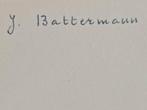 J. Battermann